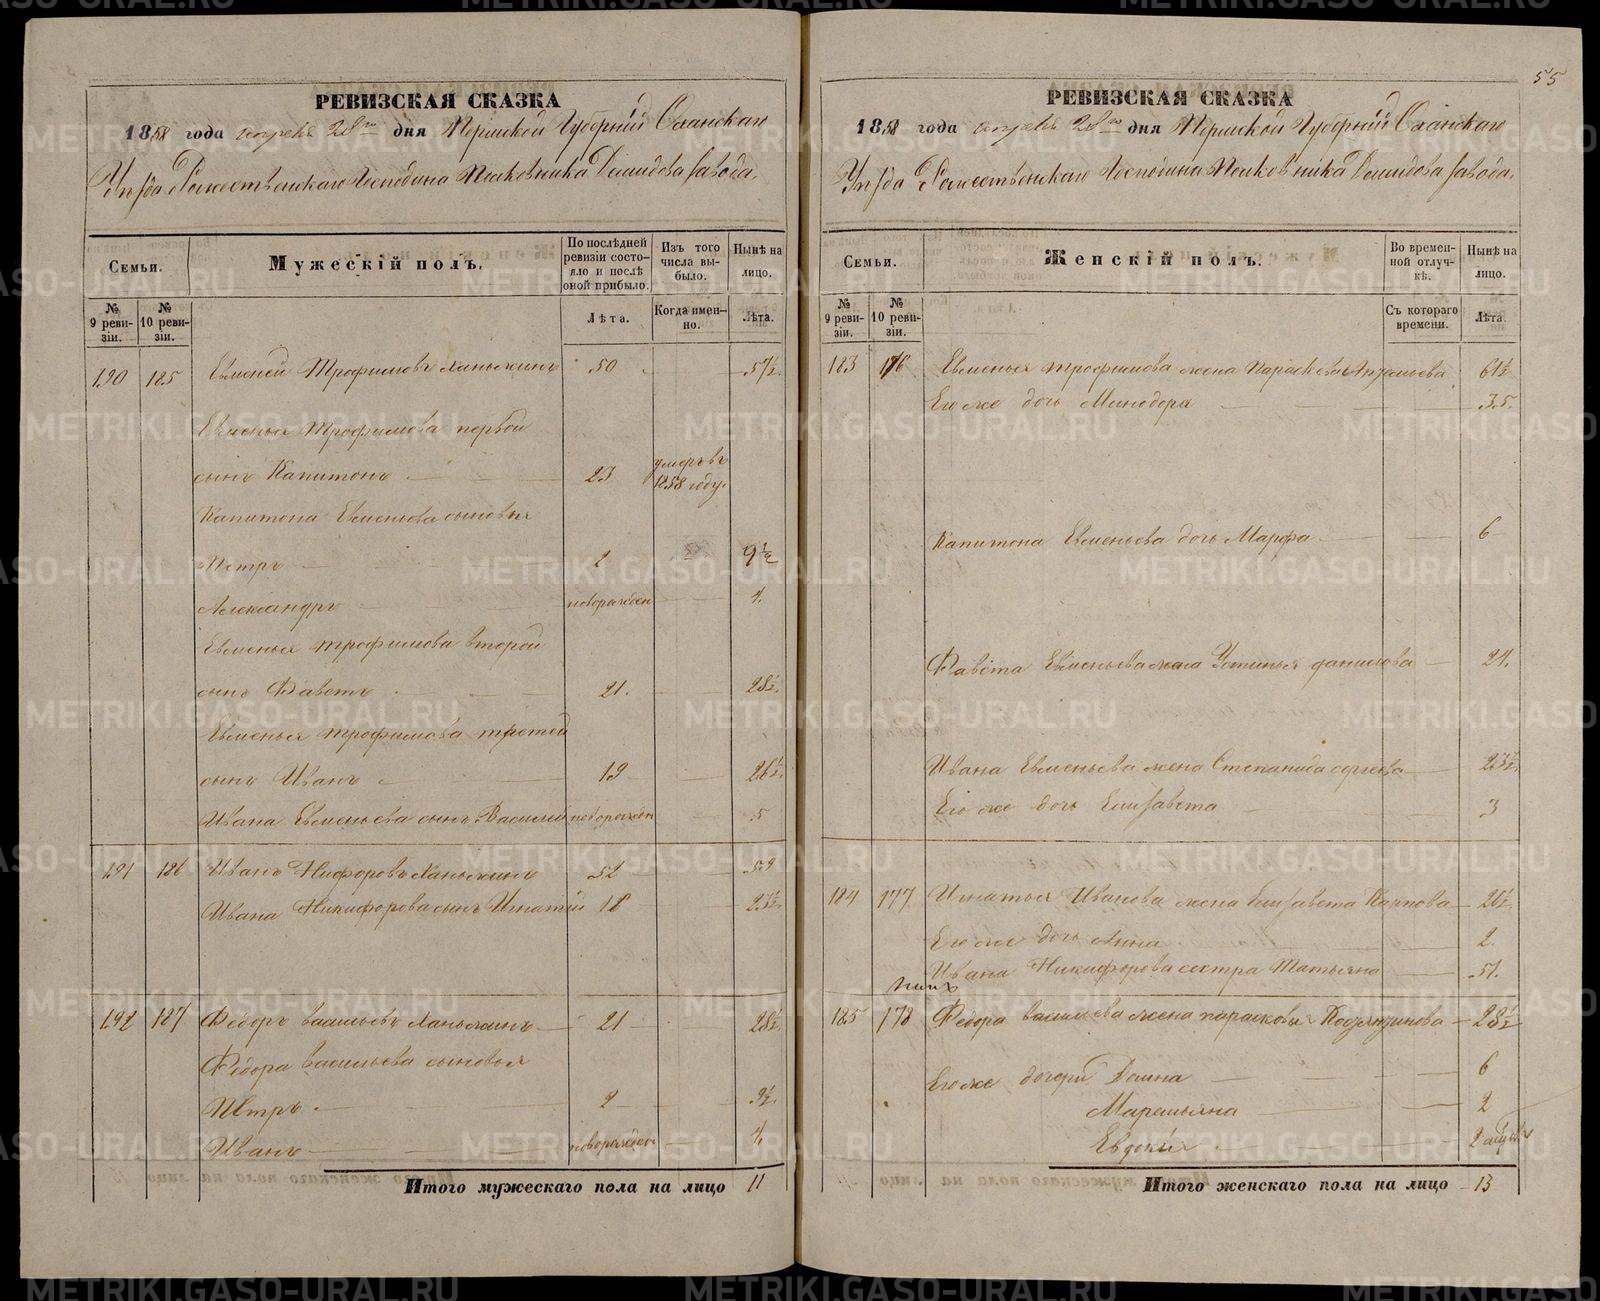 55
РЕВИЗСКАЯ СКАЗКА
1858 года апреля 28го дня Пермской Губерніи Оханскаго
Уѣзда Рожественскаго Господина Полковника Демидова завода.
Семьи.
Мужескій полъ.
По послѣдней ревизіи состояло и послѣ оной прибыло.
Изъ того числа выбыло.
Нынѣ на лицо.
№ 9 ревизіи.
№ 10 ревизіи.
Лѣта.
Когда именно.
Лѣта.
190 185 Евменей Трофимовъ 50 57½
Евменья Трофимова первой
сынъ Капитонъ 23 умеръ въ 1858 году.
Капитона Евменьева сыновья
Петръ 2 9½
Александръ новорожден 4.
Евменья Трофимова второй
сынъ Фавстъ 21. 28½
Евменья Трофимова третей
сынъ Иванъ 19 26½
Ивана Евменьева сынъ Василей новорожден 5
191 186 Иванъ Никифоровъ 52 59
Ивана Никифорова сынъ Игнатій 18 25½
192 187 Федоръ Васильевъ 21 28½
Федора Васильева сыновья
Петръ 2 9½
Иванъ новорожден 4
Итого мужескаго пола на лицо 11
РЕВИЗСКАЯ СКАЗКА
1858 года апреля 28го дня Пермской Губерніи Оханскаго
Уѣзда Рожественскаго Господина Полковника Демидова завода.
Семьи.
Женскій полъ.
Во временной отлучкѣ.
Нынѣ на лицо.
№ 9 ревизіи.
№ 10 ревизіи.
Съ котораго времени.
Лѣта.
183 176 Евменья Трофимова жена Парасковья 61½
Его же дочь Минодора 35.
Капитона Евменьева дочь Марфа 6
Фавста Евменьева жена Устинья Данилова 24.
Ивана Евменьева жена Степанида Сергеева 23½
Его же дочь Елизавета 3
184 177 Игнатья Иванова жена Елизавета Карпова 26½
Его же дочь Анна 2.
Ивана Никифорова сестра Татьяна 51.
185 178 Федора Васильева жена Парасковья 28½
Его же дочери Домна 6
Маремьяна 2
Евдокія 2
Итого женскаго пола на лицо 13
METRIKI.GASO-URAL.RU